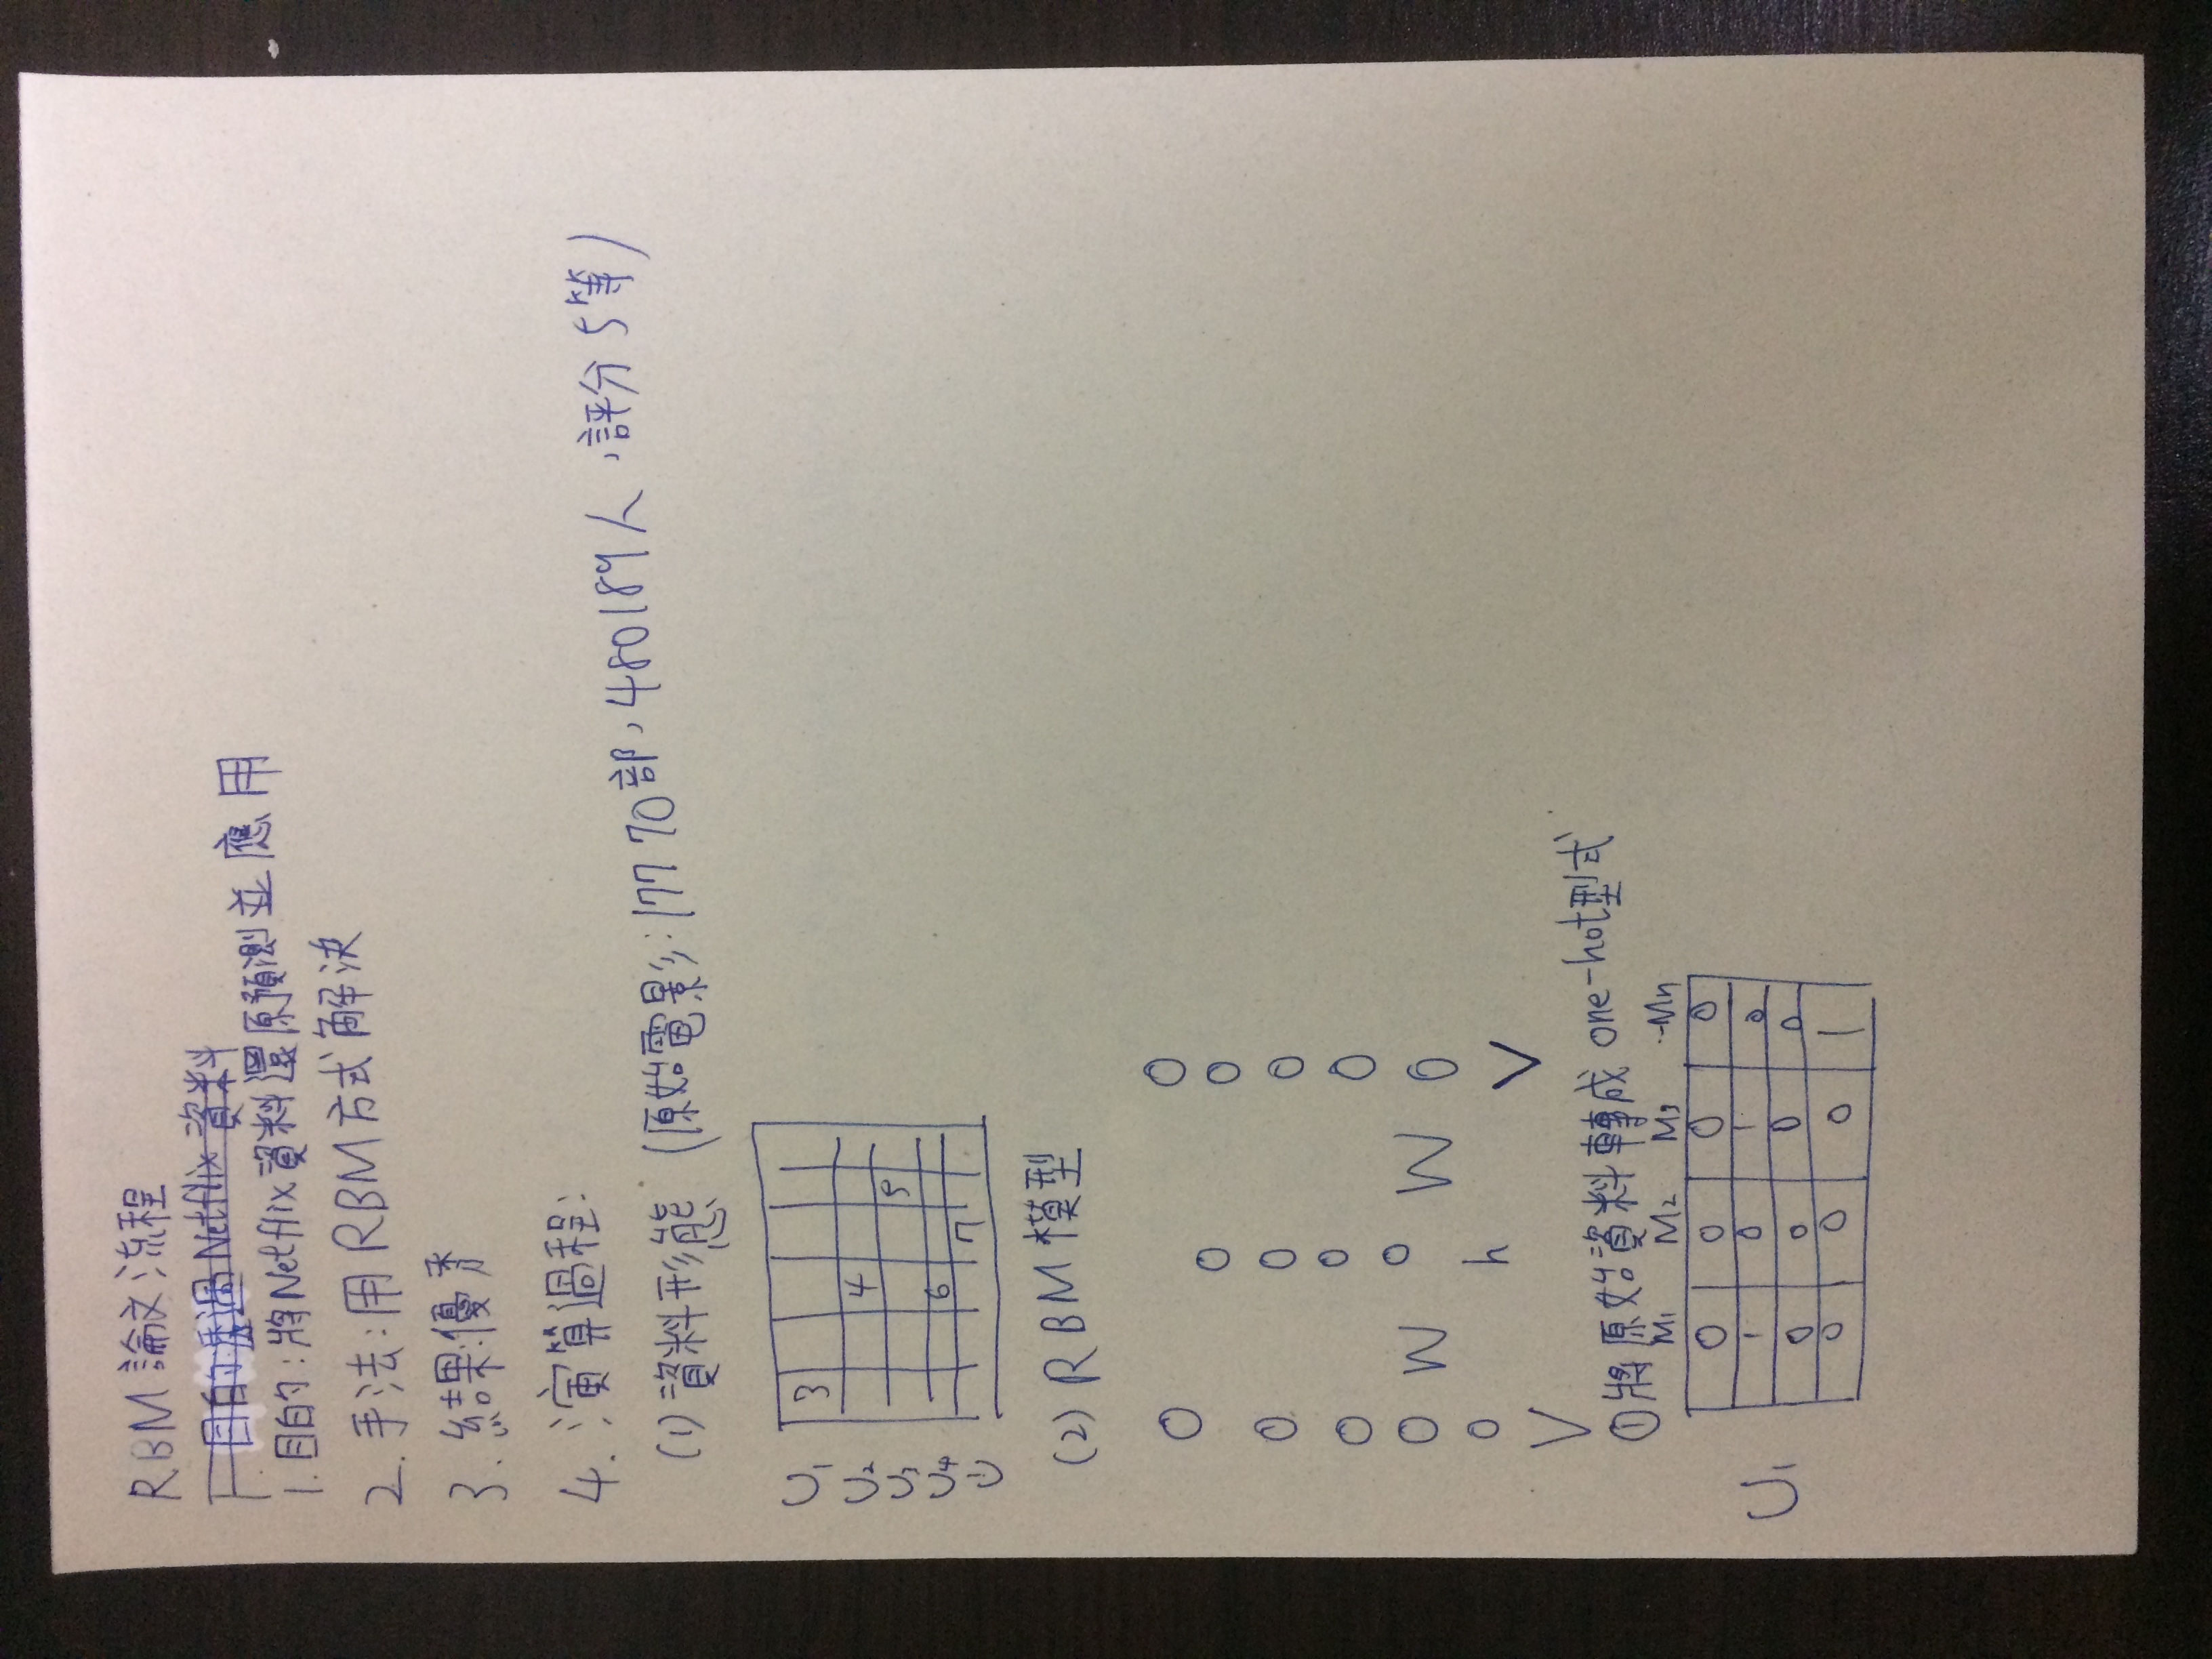 RBM 論文流程
1. 目的:透過Netflix資料
1. 目的:將Netflix資料還原預測並應用
2. 手法:用RBM方式解決
3. 結果:優秀
4. 演算過程:
(1) 資料形態 (原始電影:17770部,480189人,評分5等)
U1 3
U2 4
U3 5
U4 6
7
(2) RBM 模型
W W
h
V V
①將原始資料轉成 one-hot型式
M1 M2 M3 --Mn
0 0 0 0
1 0 1 0
U1
0 0 0 0
0 0 0 1